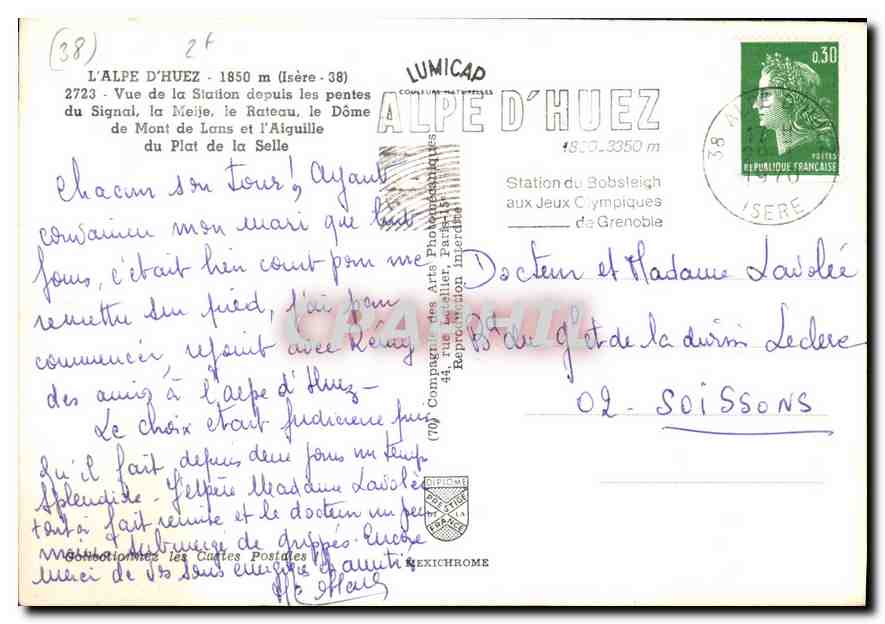 (38)
2 f
L'ALPE D'HUEZ - 1850 m (Isère - 38)
2723 - Vue de la Station depuis les pentes
du Signal, la Meije, le Rateau, le Dôme
de Mont de Lans et l'Aiguille
du Plat de la Selle
Chacun son tour! Ayant
convaincu mon mari que huit
jours, c'était bien court pour me
remettre sur pied, j'ai pour
commencer, rejoint avec Rémy
des amis à l'alpe d'Huez -
Le choix était judicieux puis
qu'il fait depuis deux jours un temps
splendide - J'espère Madame Lavolée
tout à fait remise et le docteur un peu
submergé de grippés. Encore
merci de vos soins énergiques et amitiés
Collectionnez les Cartes Postales
LUMICAP
COULEURS NATURELLES
ALPE D'HUEZ
1850-3350 m
Station du Bobsleigh
aux Jeux Olympiques
de Grenoble
38 ALPE
1970
ISERE
0,30
POSTES
REPUBLIQUE FRANÇAISE
(70) Compagnie des Arts Photomécaniques
44, rue Letellier, Paris-15e
Reproduction interdite
CPAPHIL
Docteur et Madame Lavolée
Bd du Gl et de la division Leclerc
02 - SOISSONS
DIPLOME
PRESTIGE
DE LA
FRANCE
MEXICHROME